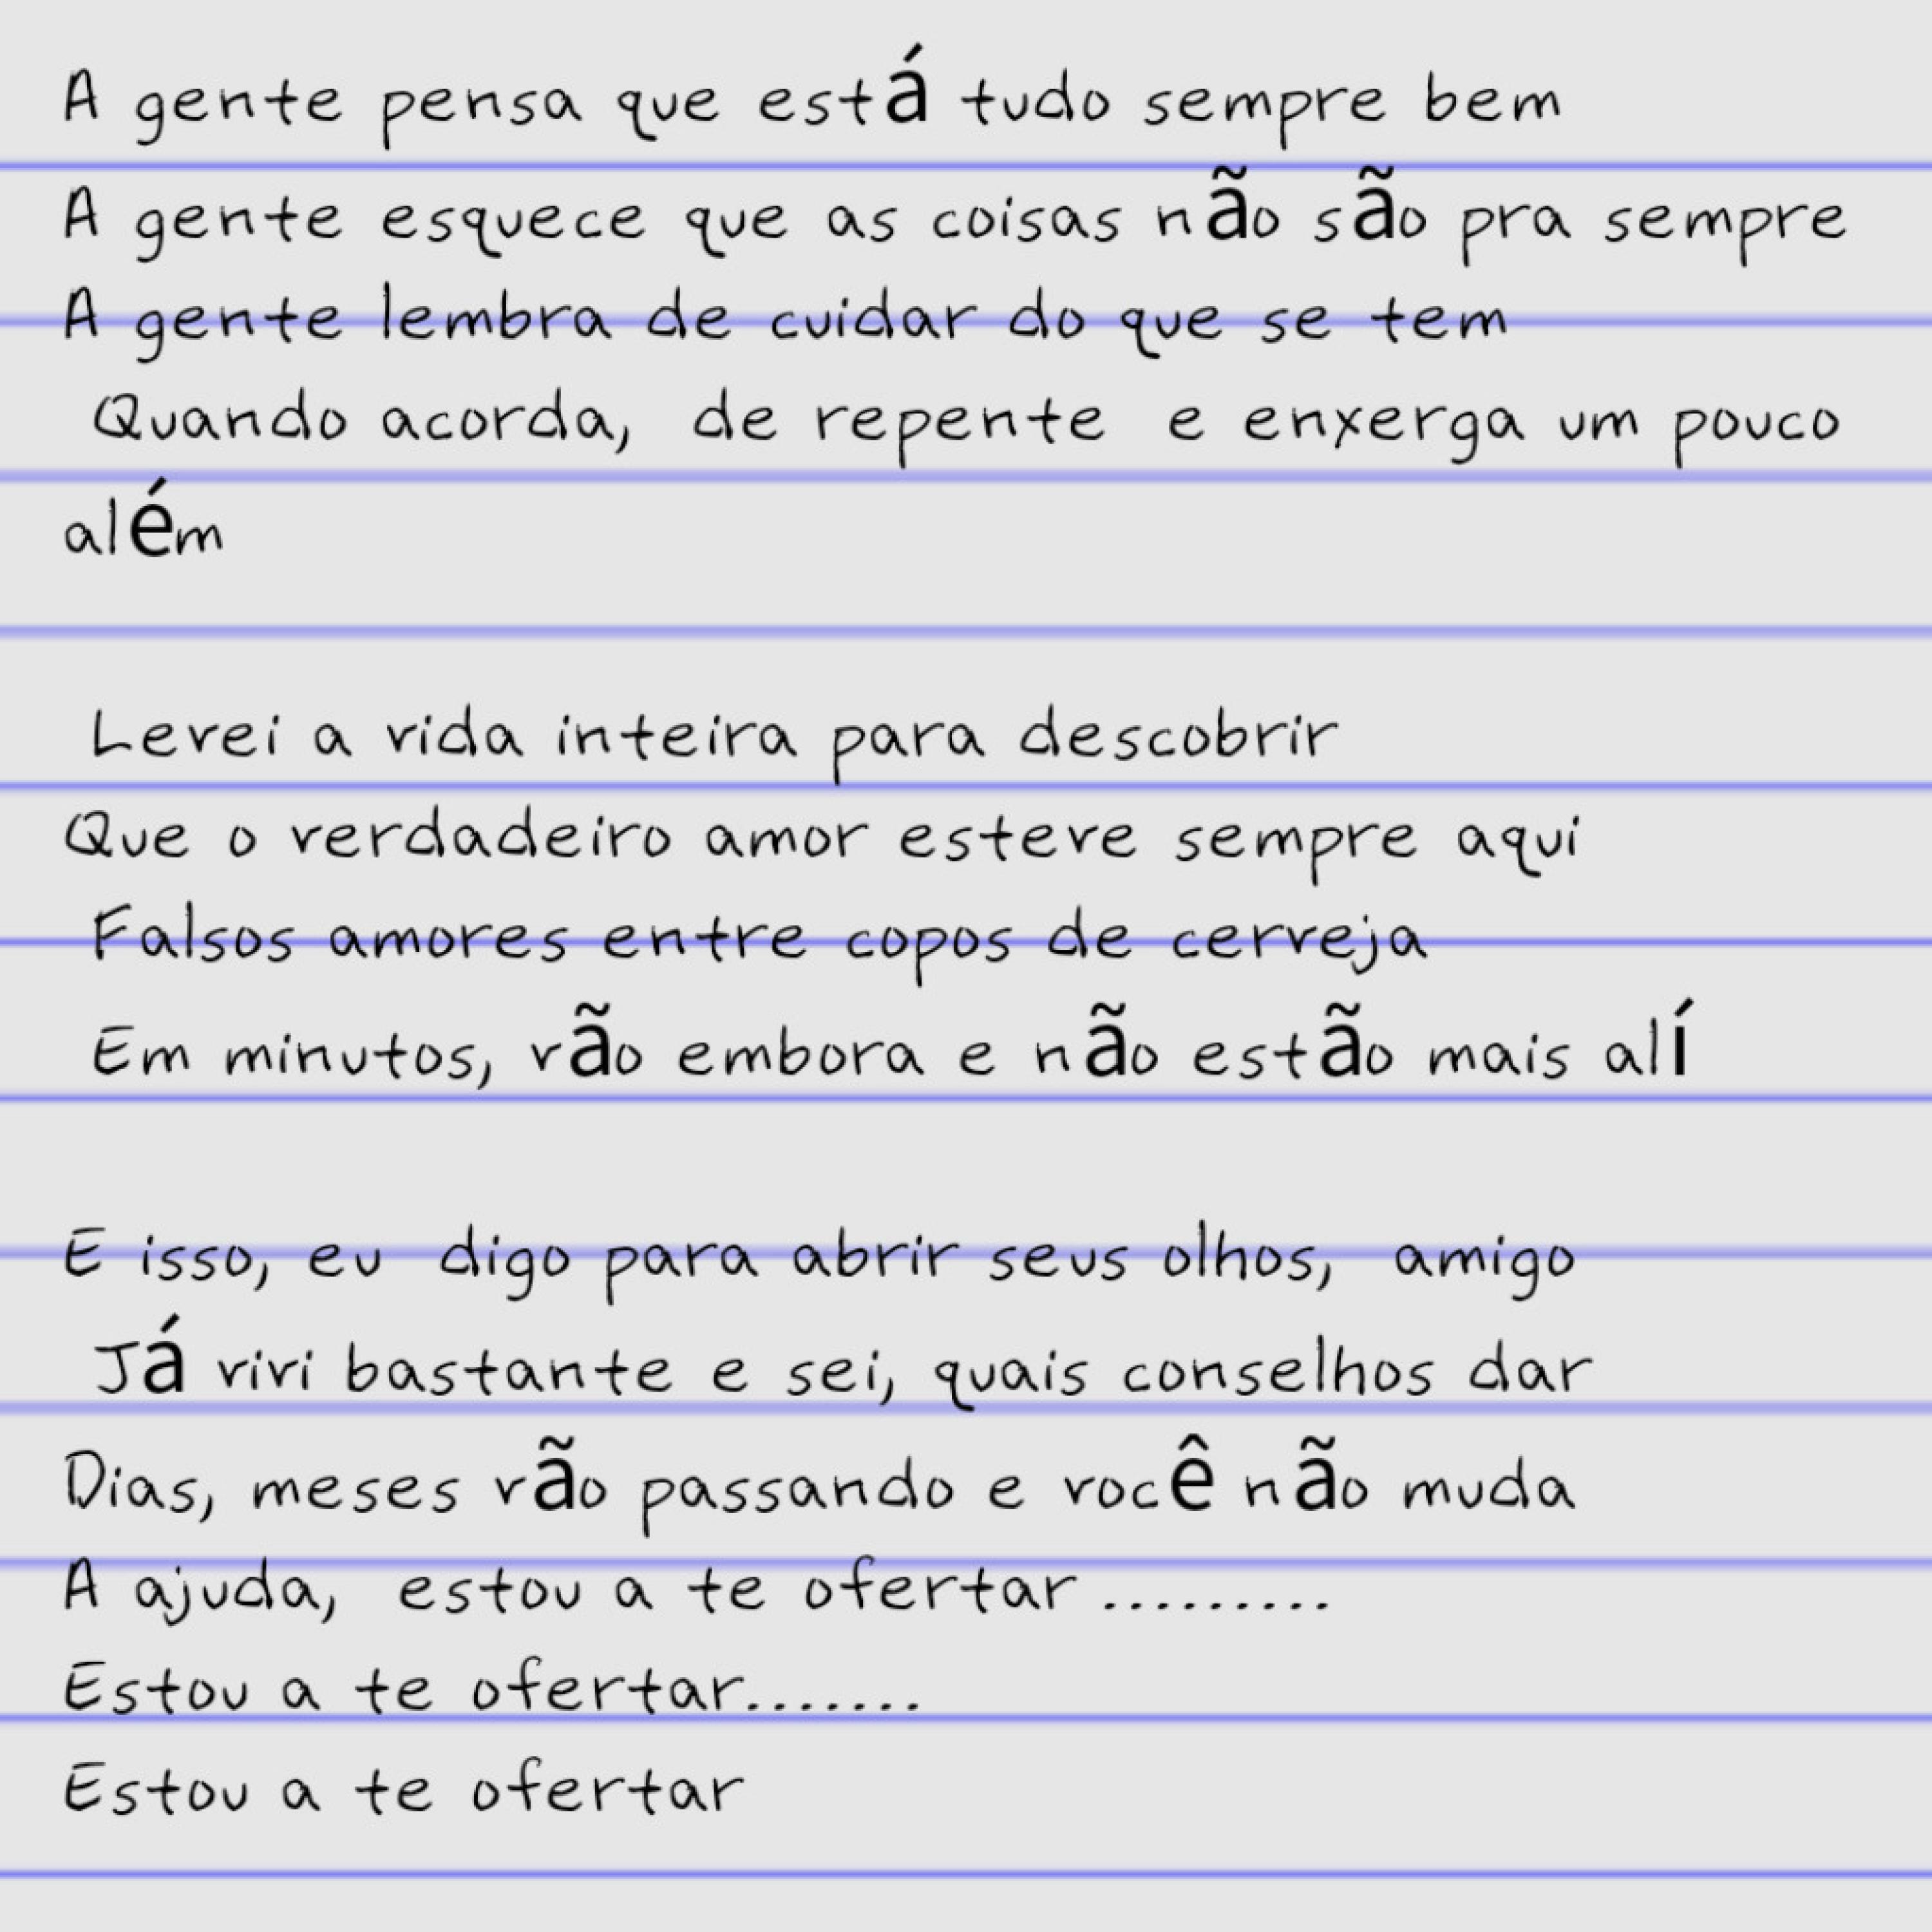 A gente pensa que está tudo sempre bem
A gente esquece que as coisas não são pra sempre
A gente lembra de cuidar do que se tem
Quando acorda, de repente e enxerga um pouco
além
Levei a vida inteira para descobrir
Que o verdadeiro amor esteve sempre aqui
Falsos amores entre copos de cerveja
Em minutos, vão embora e não estão mais alí
E isso, eu digo para abrir seus olhos, amigo
Já vivi bastante e sei, quais conselhos dar
Dias, meses vão passando e você não muda
A ajuda, estou a te ofertar .........
Estou a te ofertar.......
Estou a te ofertar